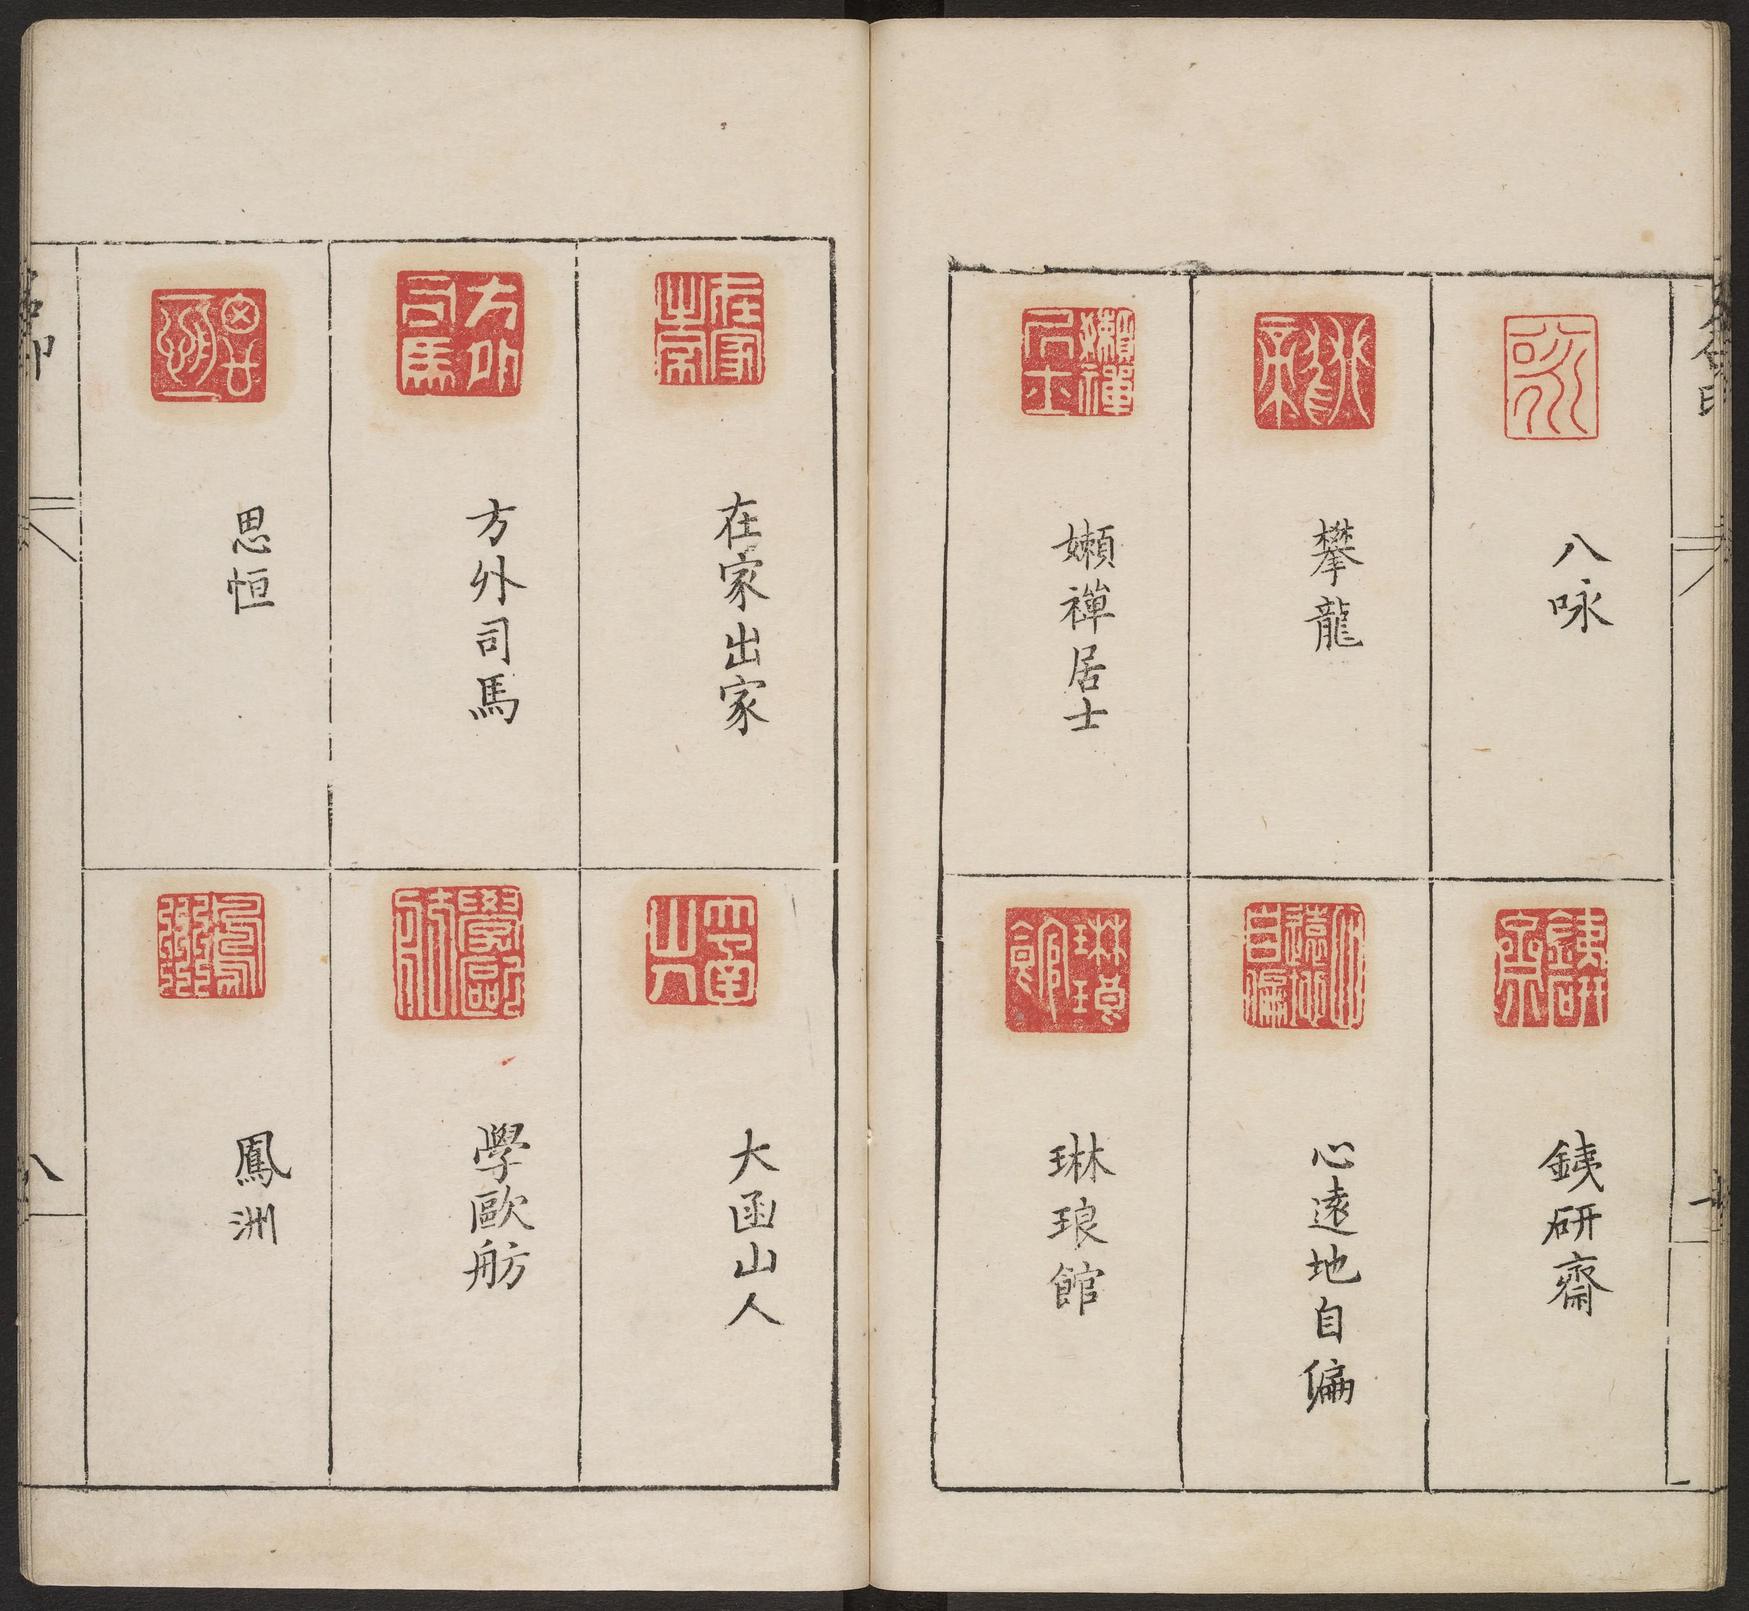 八咏
攀龍
嬾禪居士
銕研齋
心遠地自偏
琳琅館
在家出家
方外司馬
思恒
大函山人
學歐舫
鳳洲
八